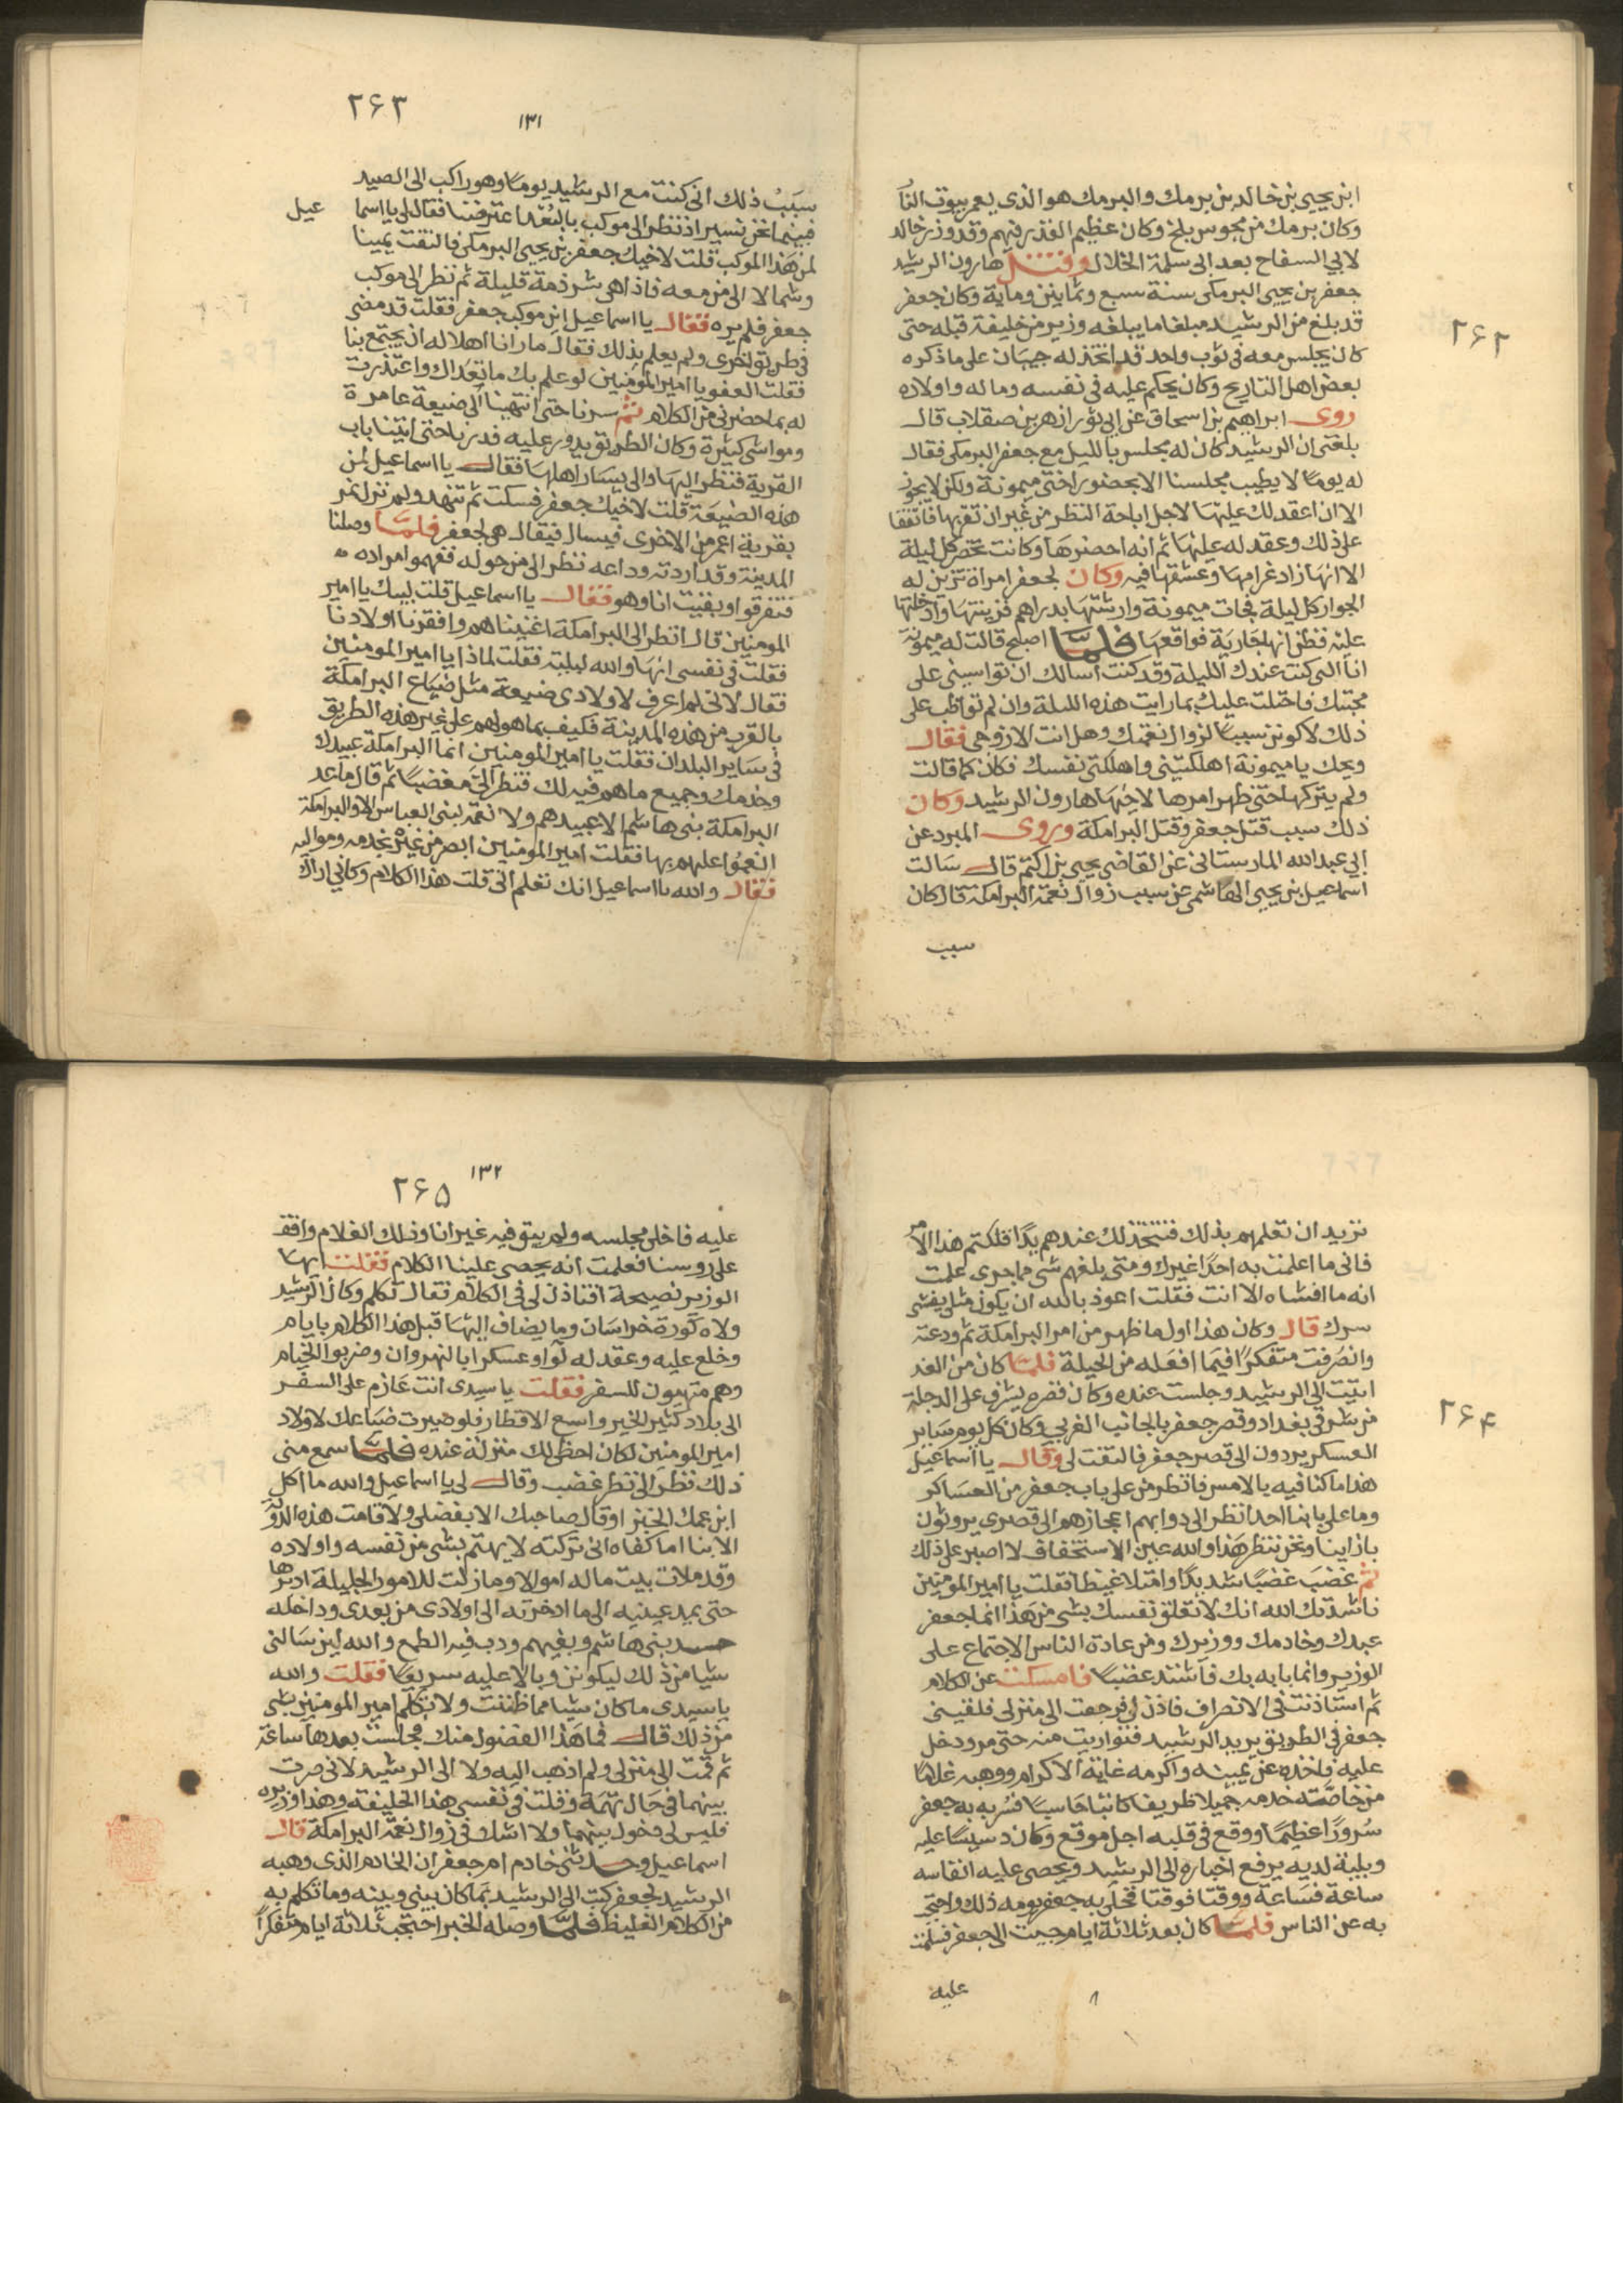 ٢۶٢
ابن يحيى بن خالد بن برمك والبرمك هو الذى يعمر بيوت النار
وكان برمك من مجوس بلخ وكان عظيم القدر فيهم وقد وزر خالد
لابي السفاح بعد ابى سلمة الخلال وقتل هارون الرشيد
جعفر بن يحيى البرمكى سنة سبع وثمانين وماية وكان جعفر
قد بلغ من الرشيد مبلغا ما يبلغه وزير من خليفة قبله حتى
كان يجلس معه فى ثوب واحد قد اتخذ له جيبان على ما ذكره
بعض اهل التاريخ وكان يحكم عليه فى نفسه وماله واولاده
روى ابراهيم بن اسحاق عن ابى ثور ازهر بن صقلاب قال
بلغنى ان الرشيد كان له مجلس بالليل مع جعفر البرمكى فقال
له يوما لا يطيب مجلسنا الا بحضور اختى ميمونة ولكن لا يجوز
الا ان اعقد لك عليها لاجل اباحة النظر من غير ان تقربها فاتفقا
على ذلك وعقد له عليها ثم انه احضرها وكانت تحضر كل ليلة
الا انها زاد غرامها وعشقها فيه وكان لجعفر امراة تزين له
الجوار كل ليلة فجات ميمونة وارشتها بدراهم فزينتها وادخلتها
عليه فظن انها جارية فواقعها فلما اصبح قالت له ميمونة
انا التى كنت عندك الليلة وقد كنت اسالك ان تواسينى على
محبتك فاحتلت عليك بما رايت هذه الليلة وان لم تواظب على
ذلك لاكونن سببا لزوال نعمتك وهل انت الا زوجى فقال
ويحك يا ميمونة اهلكتينى واهلكتى نفسك فكان كما قالت
ولم يتركها حتى ظهر امرها لاخيها هارون الرشيد وكان
ذلك سبب قتل جعفر وقتل البرامكة وروى المبرد عن
ابى عبد الله المارستانى عن القاضى يحيى بن اكتم قال سالت
اسماعيل بن يحيى الهاشمى عن سبب زوال نعمة البرامكة قال كان
سبب
٢۶٣
١٣١
سبب ذلك انى كنت مع الرشيد يوما وهو راكب الى الصيد
فبينما نحن نسير اذ نظر الى موكب بالبعد اعترضنا فقال لى يا اسما عيل
لمن هذا الموكب قلت لاخيك جعفر بن يحيى البرمكى فالتفت يمينا
وشمالا الى من معه فاذا هى شرذمة قليلة ثم نظر الى موكب
جعفر فلم يره فقال يا اسماعيل اين موكب جعفر فقلت قد مضى
فى طريق اخرى ولم يعلم بذلك فقال ما رانا اهلا له ان يجتمع بنا
فقلت العفو يا امير المؤمنين لو علم بك ما تعداك واعتذرت
له بما حضرنى من الكلام ثم سرنا حتى انتهينا الى ضيعة عامرة
ومواشى كثيرة وكان الطريق يدور عليه فدرنا حتى اتينا باب
القرية فنظر اليها والى يسار اهلها فقال يا اسماعيل لمن
هذه الضيعة قلت لاخيك جعفر فسكت ثم تنهد ولم نزل نمر
بقرية اعمر من الاخرى فيسال فيقال هى لجعفر فلما وصلنا
المدينة وقد اردت وداعه نظر الى من حوله ففهموا مراده
فتفرقوا وبقيت انا وهو فقال يا اسماعيل قلت لبيك يا امير
المومنين قال انظر الى البرامكة اغنيناهم وافقرنا اولادنا
فقلت فى نفسى انها والله لبلية فقلت لماذا يا امير المومنين
فقال لانى لم اعرف لاولادى ضيعة مثل ضياع البرامكة
بالقرب من هذه المدينة فكيف بما هو لهم على غير هذه الطريق
فى ساير البلدان فقلت يا امير المومنين انما البرامكة عبيدك
وخدمك وجميع ما هم فيه لك فنظر الى مغضبا ثم قال ما عد
البرامكة بنى هاشم الا عبيدهم ولا نعمة لبنى العباس الا والبرامكة
انعموا عليهم بها فقلت امير المومنين ابصر من غيره بخدمه ومواليه
فقال والله يا اسماعيل انك تعلم انى قلت هذا الكلام وكانى اراك
٢۶۴
تريد ان تعلمهم بذلك فتتخذ لك عندهم يدا فلكتم هذا الامر
فانى ما اعلمت به احدا غيرك ومتى بلغهم شى مما جرى علمت
انه ما افشاه الا انت فقلت اعوذ بالله ان يكون مثلى يفشى
سرك قال وكان هذا اول ما ظهر من امر البرامكة ثم ودعته
وانصرفت متفكرا فيما افعله من الحيلة فلما كان من الغد
اتيت الى الرشيد وجلست عنده وكان قصره يشرف على الدجلة
من شرقى بغداد وقصر جعفر بالجانب الغربى وكان كل يوم ساير
العسكر يردون الى قصر جعفر فالتفت لى وقال يا اسماعيل
هذا ما كنا فيه بالامس فانظر من على باب جعفر من العساكر
وما على بابنا احد انظر الى دوابهم اعجازهم الى قصرى يروثون
بازاينا ونحن ننظر هذا والله عين الاستخفاف لا اصبر على ذلك
ثم غضب غضبا شديدا وامتلا غيظا فقلت يا امير المومنين
ناشدتك الله انك لا تعلق نفسك بشى من هذا انما جعفر
عبدك وخادمك ووزيرك ومن عادة الناس الاجتماع على
الوزير وانما بابه بك فاشتد غضبا فامسكت عن الكلام
ثم استاذنت فى الانصراف فاذن لى فرجعت الى منزلى فلقينى
جعفر فى الطريق يريد الرشيد فتواريت منه حتى مر ودخل
عليه فاخذه عن يمينه واكرمه غاية الاكرام ووهبه غلاما
من خاصة خدمه جميلا ظريفا كاتبا حاسبا فسر به جعفر
سرورا عظيما ووقع فى قلبه اجل موقع وكان دسيسا عليه
وبلية لديه يرفع اخباره الى الرشيد ويحصى عليه انفاسه
ساعة فساعة ووقتا فوقتا فخلى به جعفر يومه ذلك واحتجب
به عن الناس فلما كان بعد ثلاثة ايام جيت الى جعفر فسلمت
عليه
٢۶۵
١٣٢
عليه فاخلى مجلسه ولم يبق فيه غير انا وذلك الغلام واقف
على روسنا فعلمت انه يحصى علينا الكلام فقلت ايها
الوزير نصيحة افتاذن لى فى الكلام فقال تكلم وكان الرشيد
ولاه كورة خراسان وما يضاف اليها قبل هذا الكلام بايام
وخلع عليه وعقد له لوا وعسكرا بالنهروان وضربوا الخيام
وهم متهيون للسفر فقلت يا سيدى انت عازم على السفر
الى بلاد كثير الخير واسع الاقطار فلو صيرت ضياعك لاولاد
امير المومنين لكان احظى لك منزلة عنده فلما سمع منى
ذلك نظر الى نظر غضب وقال لى يا اسماعيل والله ما اكل
ابن عمك الخبز او قال صاحبك الا بفضلى ولا قامت هذه الدولة
الا بنا اما كفاه انى تركته لا يهتم بشى من نفسه واولاده
وقد ملات بيت ماله اموالا وما زلت للامور الجليلة ادبرها
حتى يمد عينيه الى ما ادخرته الى اولادى من بعدى وداخله
حسد بنى هاشم وبغيهم ودب فيه الطمع والله لين سالنى
شيا من ذلك ليكونن وبالا عليه سريعا فقلت والله
يا سيدى ما كان شيا مما ظننت ولا تكلم امير المومنين بشى
من ذلك قال فما هذا الفضول منك فجلست بعدها ساعة
ثم قمت الى منزلى ولم اذهب اليه ولا الى الرشيد لانى صرت
بينهما فى حال تهمة وقلت فى نفسى هذا الخليفة وهذا وزيره
فليس لى دخول بينهما ولا اشك فى زوال نعمة البرامكة قال
اسماعيل وحدثنى خادم ام جعفر ان الخادم الذى وهبه
الرشيد لجعفر كتب الى الرشيد بما كان بينى وبينه وما تكلم به
من الكلام الغليظ فلما وصله الخبر احتجب ثلاثة ايام متفكرا